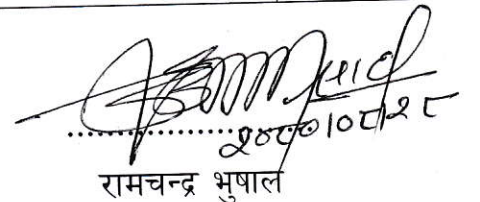 २०८०।०८।२८
रामचन्द्र भुषाल